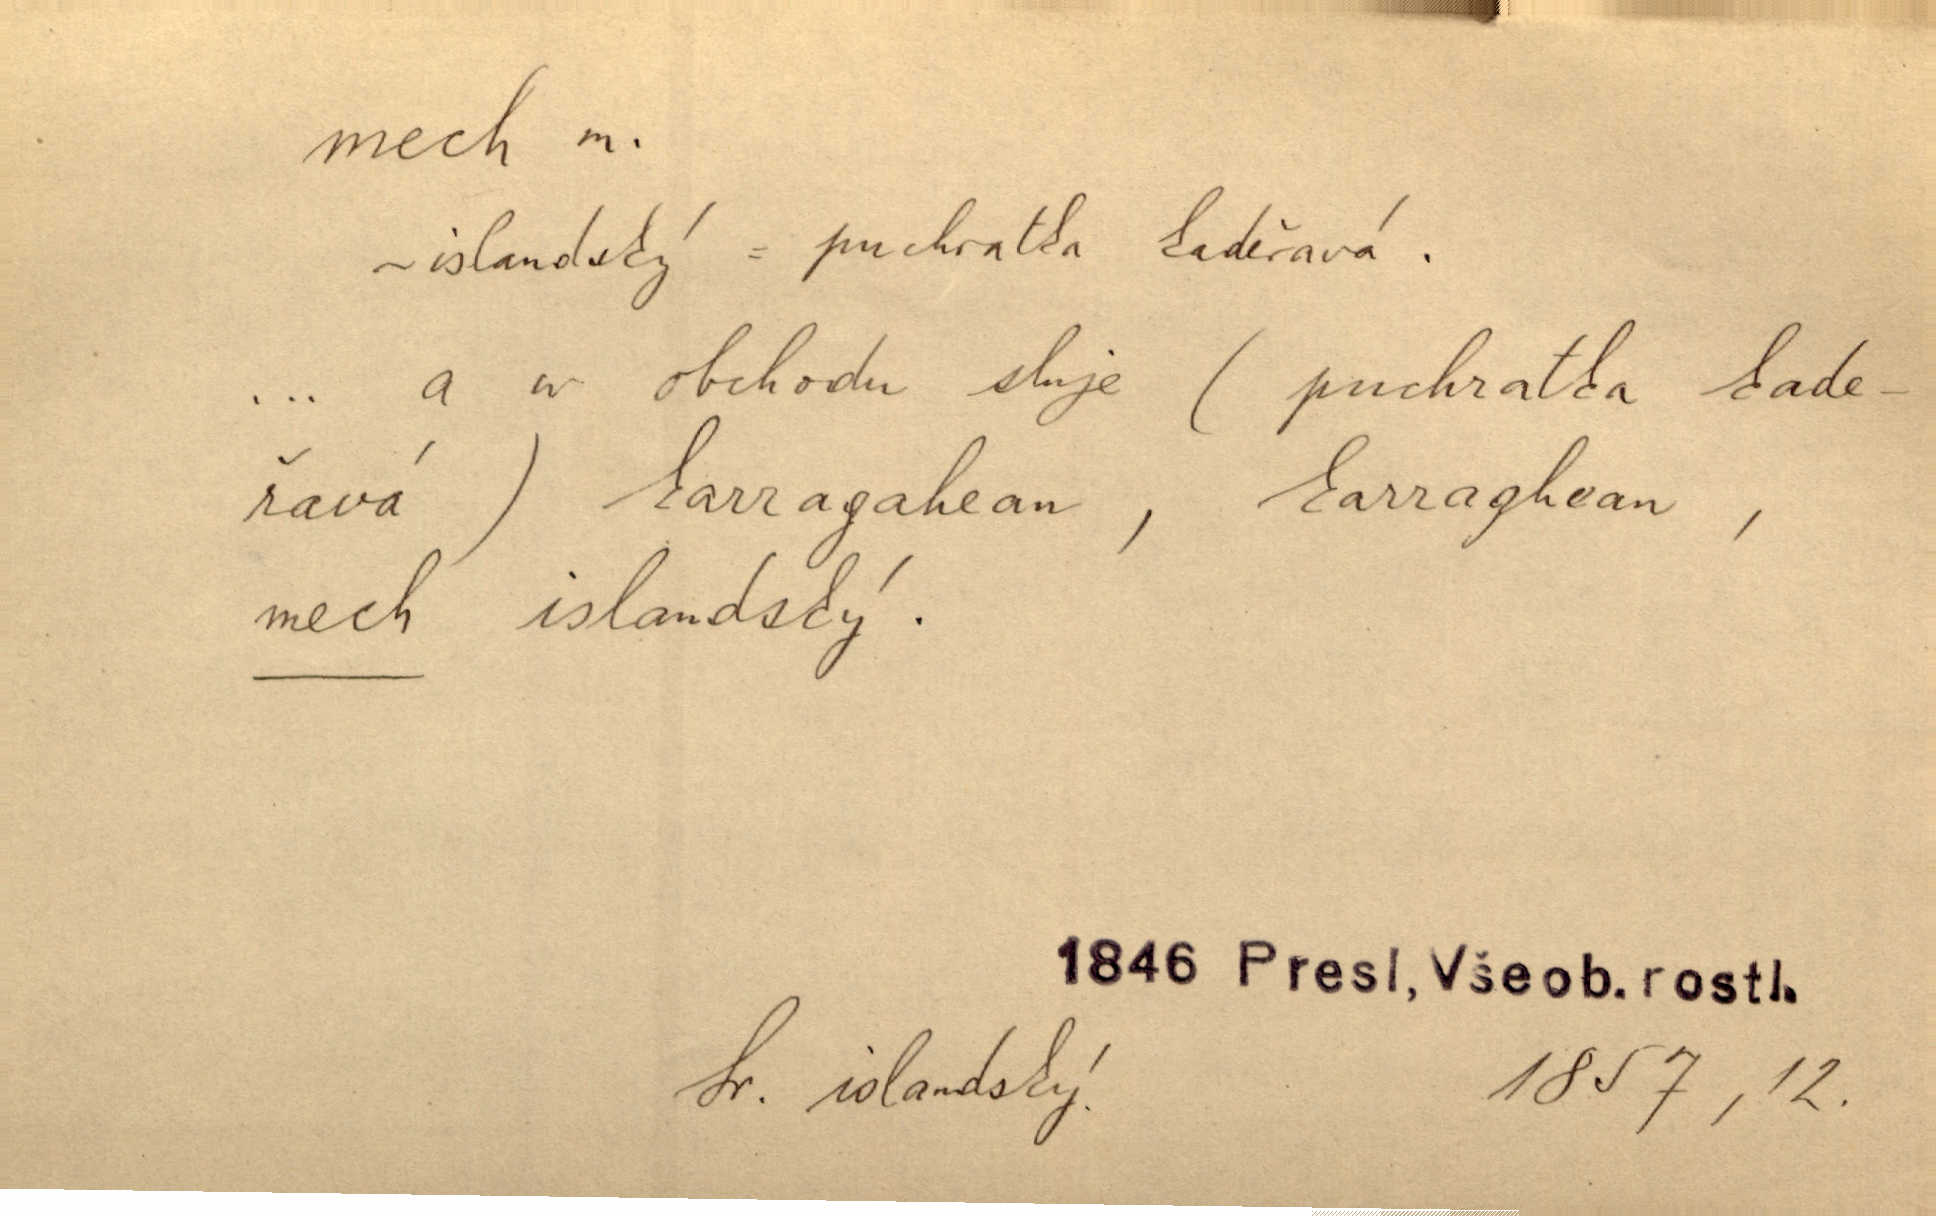 mech m.
~islandský = puchratka kadeřavá.
... a w obchodu sluje ( puchratka kade-
řavá ) karragahean, karraghean,
mech islandský.
1846 Presl, Všeob. rostl.
Sr. islandský.
1857, 12.